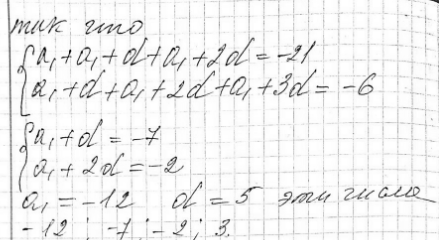 так что
{a₁+a₁+d+a₁+2d=-21
a₁+d+a₁+2d+a₁+3d=-6
{a₁+d=-7
a₁+2d=-2
a₁=-12 d=5 эти числа
-12; -7; -2; 3.